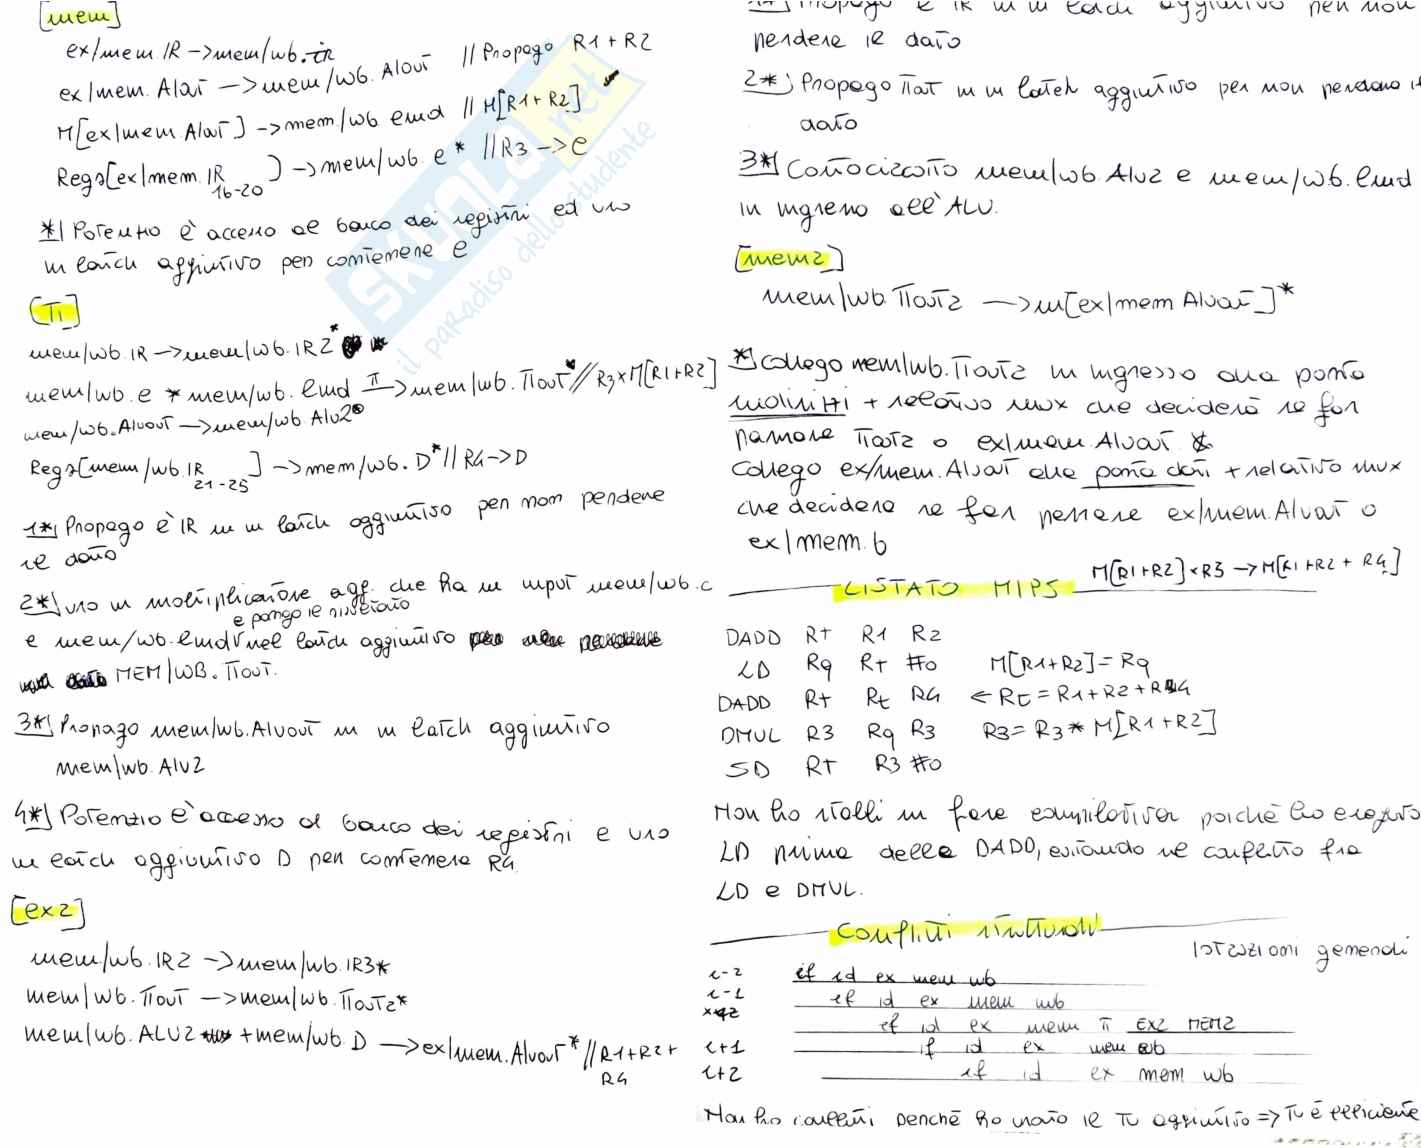 [mem]
ex/mem IR -> mem/wb.ir
ex/mem. Alat -> mem/wb. Alout // Propago R1+R2
M[ex/mem.Alat] -> mem/wb lmd // M[R1+R2]
Regs[ex/mem.IR 16-20] -> mem/wb. e * // R3 -> e
*] Potenzio l'accesso al banco dei registri ed uso
un latch aggiuntivo per contenere e
[π]
mem/wb.IR -> mem/wb.IR2*
mem/wb.e * mem/wb.lmd π -> mem/wb.πout* // R3xM[R1+R2]
mem/wb.Aluout -> mem/wb.Alu2
Regs[mem/wb.IR 21-25] -> mem/wb. D* // R4 -> D
1*] Propago l'IR in un latch aggiuntivo per non perdere
il dato
2*] uso un moltiplicatore agg. che ha in input mem/wb.c
e pongo il risultato
e mem/wb.lmd nel latch aggiuntivo
MEM/WB.πout.
3*] Propago mem/wb.Aluout in un latch aggiuntivo
mem/wb.Alu2
4*] Potenzio l'accesso al banco dei registri e uso
un latch aggiuntivo D per contenere R4
[ex2]
mem/wb.IR2 -> mem/wb.IR3*
mem/wb.πout -> mem/wb.πout2*
mem/wb.ALU2 + mem/wb.D -> ex/mem.Aluout* // R1+R2+
R4
1*] Propago l'IR in un latch aggiuntivo per non
perdere il dato
2*] Propago πout in un latch aggiuntivo per non perdere il
dato
3*] Cortocircuito mem/wb.Alu2 e mem/wb.lmd
in ingresso all'ALU.
[mem2]
mem/wb.πout2 -> m[ex/mem Aluout]*
*] collego mem/wb.πout2 in ingresso alla porta
indirizzi + relativo mux che deciderà se far
passare πout2 o ex/mem.Aluout.
collego ex/mem.Aluout alla porta dati + relativo mux
che deciderà se far passare ex/mem.Aluout o
ex/mem.b
LISTATO MIPS M[R1+R2]xR3 -> M[R1+R2+R4]
DADD Rt R1 R2
LD Rq Rt #0 M[R1+R2]=Rq
DADD Rt Rt R4 <- Rt=R1+R2+R4
DMUL R3 Rq R3 R3=R3*M[R1+R2]
SD Rt R3 #0
Non ho stalli in fase compilativa poichè ho eseguito
LD prima della DADD, evitando il conflitto fra
LD e DMUL.
Conflitti strutturali
Istruzioni generali
i-2 if id ex mem wb
i-1 if id ex mem wb
if id ex mem π EX2 MEM2
i+1 if id ex mem wb
i+2 if id ex mem wb
Non ho conflitti perchè ho usato il π aggiuntivo => π è efficiente
SKUOLA.net
il paRadiso dello studente